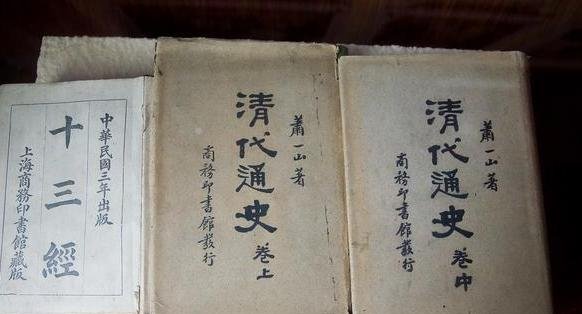 中華民國三年出版
十三經
上海商務印書館藏版
蕭一山著
清代通史
卷上
商務印書館發行
蕭一山著
清代通史
卷中
商務印書館發行